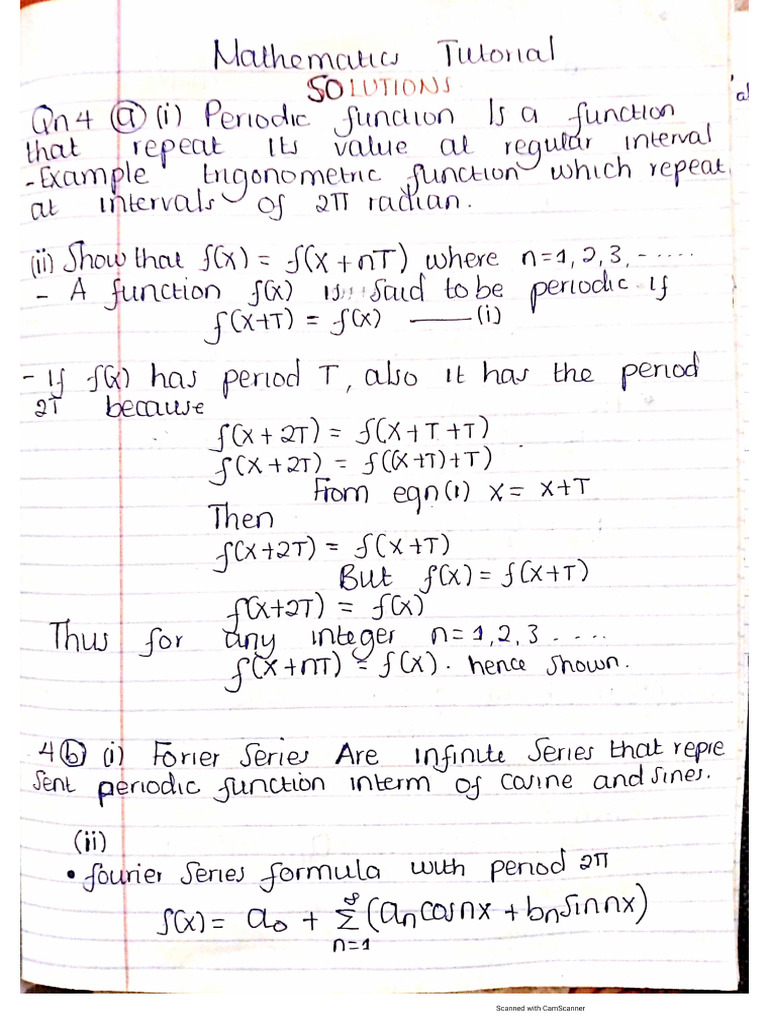 Mathematics Tutorial
SOLUTIONS
Qn 4 (a) (i) Periodic function Is a function
that repeat Its value at regular interval
- Example trigonometric function which repeat
at intervals of 2π radian.
(ii) Show that f(x) = f(x + nT) where n=1, 2, 3, - ....
- A function f(x) is said to be periodic if
f(x+T) = f(x) —— (i)
- If f(x) has period T, also it has the period
2T because
f(x + 2T) = f(x + T + T)
f(x + 2T) = f((x+T)+T)
From eqn(1) x = x+T
Then
f(x+2T) = f(x+T)
But f(x) = f(x+T)
f(x+2T) = f(x)
Thus for any integer n=1, 2, 3 ....
f(x + nT) = f(x). hence shown.
4 (b) (i) Forier Series Are infinite series that repre
sent periodic function interm of cosine and sines.
(ii)
• fourier series formula with period 2π
f(x) = a₀ + ∞Σn=1 (aₙcosnx + bₙsinnx)
Scanned with CamScanner